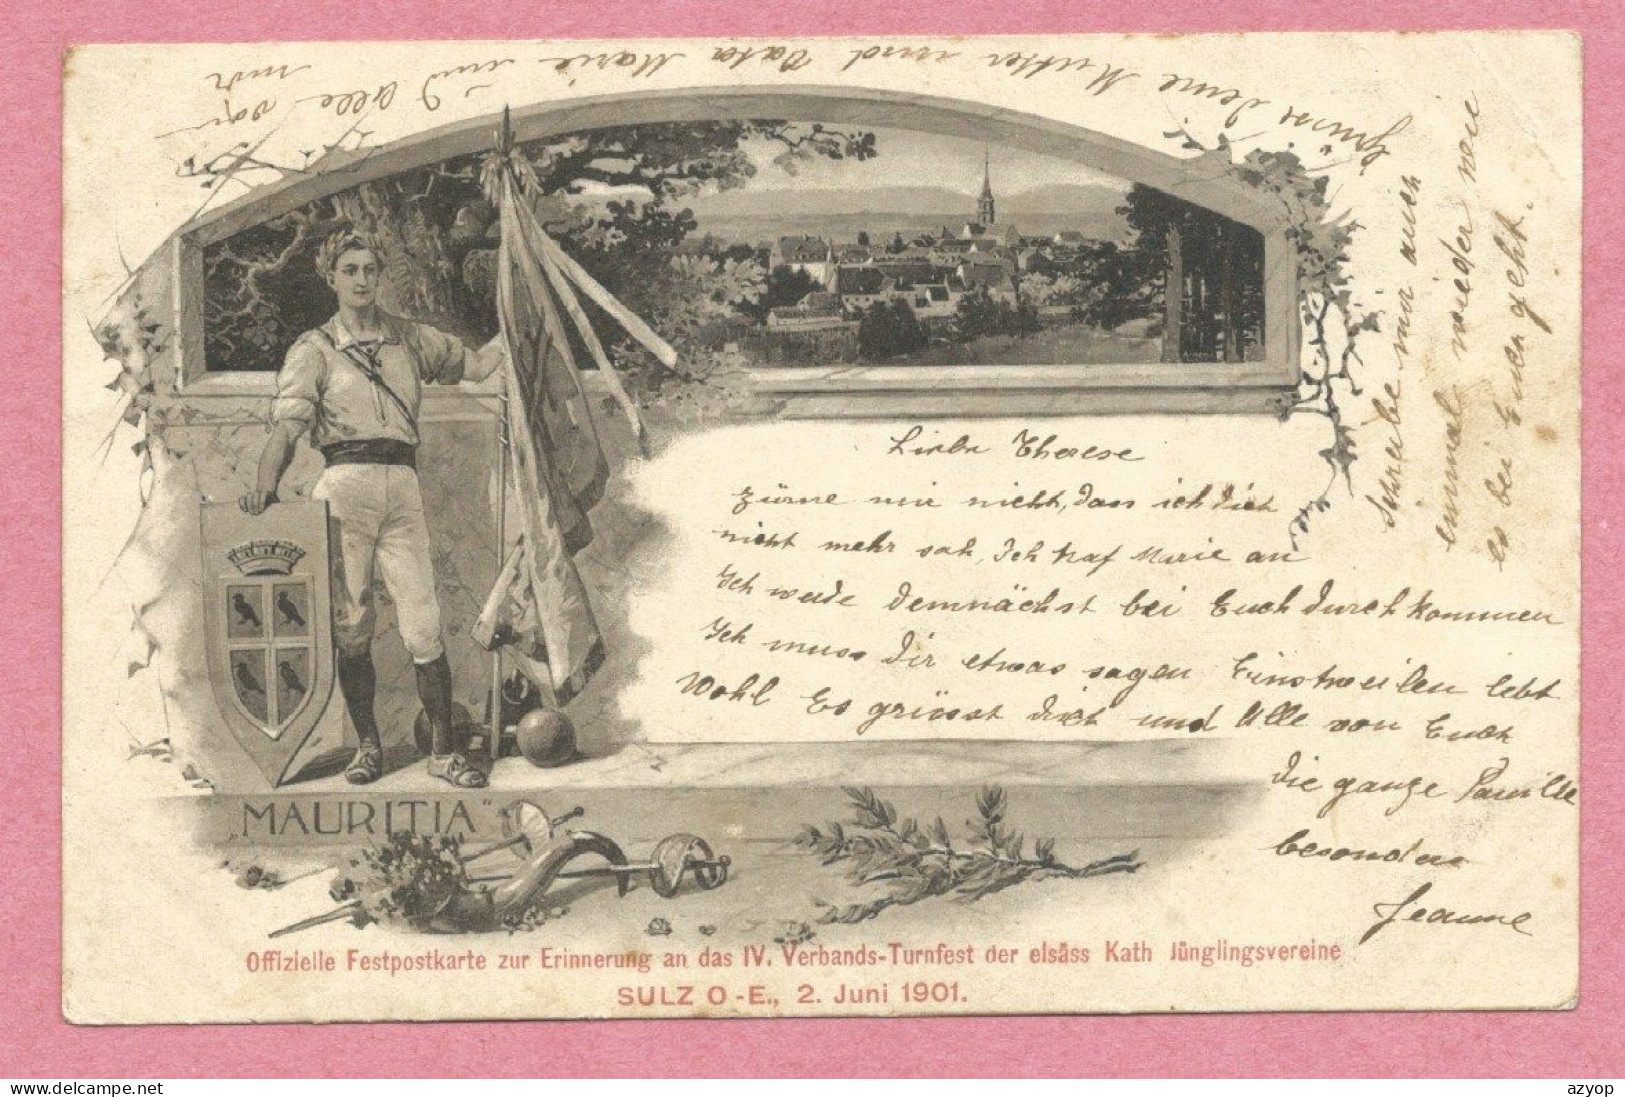 Liebe Therese
zürne mir nicht, dass ich dich
nicht mehr sah, Ich traf Marie an
Ich werde demnächst bei Euch durchkommen
Ich muss dir etwas sagen Einstweilen lebt
Wohl Es grüsst dich und Alle von Euch
die ganze Familie
besonders
Jeanne
Schreibe mir auch
einmal wieder wie
es bei Euch geht.
Grüsse deine Mutter und Marie und Alle von
mir
„MAURITIA“
Offizielle Festpostkarte zur Erinnerung an das IV. Verbands-Turnfest der elsäss Kath Jünglingsvereine
SULZ O-E., 2. Juni 1901.
delcampe.net
azyop